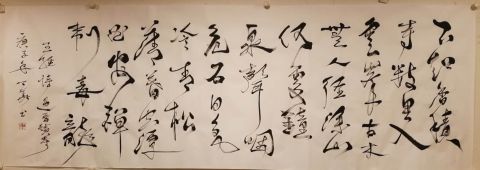 不知香積
寺數里入
雲峰古木
無人徑深山
何處鐘
泉聲咽
危石日色
冷青松
薄暮空潭
曲安禪
制毒龍
王維詩過香積寺
庚子年書